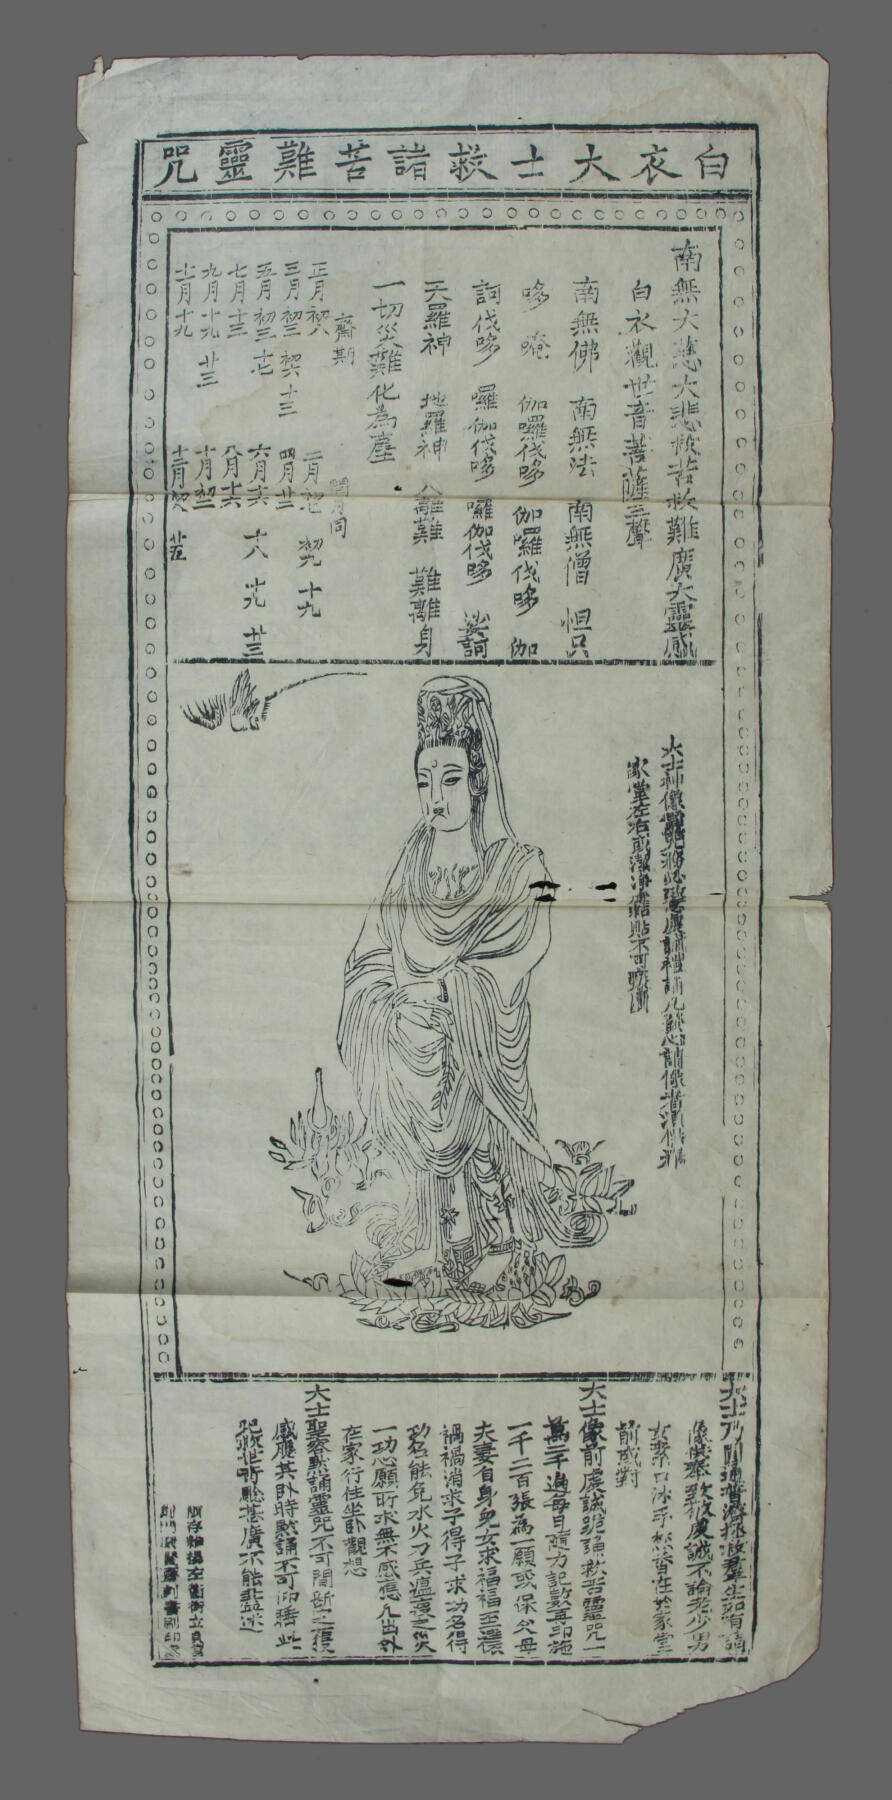 白衣大士救諸苦難靈咒
南無大慈大悲救苦救難廣大靈感
白衣觀世音菩薩三聲
南無佛 南無法 南無僧 怛只
哆 唵 伽囉伐哆 伽囉伐哆 伽
訶伐哆 囉伽伐哆 囉伽伐哆 娑訶
天羅神 地羅神 人離難 難離身
一切災難化為塵
齋期 閏月同
正月初八 二月初七 初九 十九
三月初三 初六 十三 四月廿二
五月初三 十七 六月十六 十八 十九 廿三
七月十三 八月十六
九月十九 廿三 十月初二
十一月十九 十二月初八 廿五
大士神像
家堂左右或潔淨處粘貼不可喚圖
大士乃
像供奉致敬虔誠不論老少男
女漱口沐手焚香在於家堂
前或對
大士像前虔誠跪誦救苦靈咒一
萬二千遍每日隨力記數再印施
一千二百張為一願或保父母
夫妻自身兒女求福福至禳
禍禍消求子得子求功名得
功名能免水火刀兵瘟疫之災
一切心願所求無不感應凡出外
在家行住坐卧觀想
大士聖容默誦靈咒不可間斷之
感應其卧時默誦不可仰睡此
咒救世所驗甚廣不能盡述